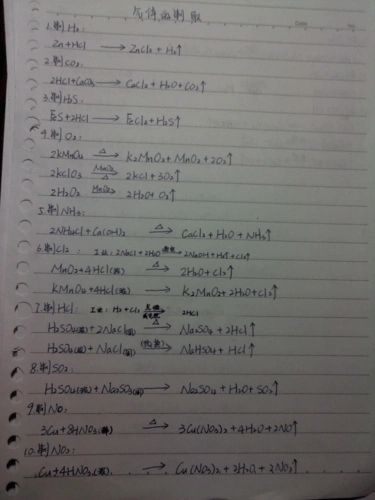 气体的制取
1.制H₂:
Zn+HCl ⟶ ZnCl₂ + H₂↑
2.制CO₂:
2HCl+CaCO₃ ⟶ CaCl₂ + H₂O+CO₂↑
3.制H₂S:
FeS+2HCl ⟶ FeCl₂+H₂S↑
4.制O₂:
2KMnO₄ △⟶ K₂MnO₄+MnO₂+2O₂↑
2KClO₃ MnO₂/△⟶ 2KCl+3O₂↑
2H₂O₂ MnO₂⟶ 2H₂O+O₂↑
5.制NH₃:
2NH₄Cl+Ca(OH)₂ △⟶ CaCl₂+H₂O+NH₃↑
6.制Cl₂: 工业:2NaCl+2H₂O ⟶ 2NaOH+H₂↑+Cl₂↑
MnO₂+4HCl(浓) △⟶ 2H₂O+Cl₂↑
KMnO₄+4HCl(浓) ⟶ K₂MnO₄+2H₂O+Cl₂↑
7.制HCl: 工业:H₂+Cl₂ 点燃⟶ 2HCl
H₂SO₄(浓)+2NaCl(固) △⟶ Na₂SO₄+2HCl↑
H₂SO₄(浓)+NaCl(固) ⟶ NaHSO₄+HCl↑
8.制SO₂:
H₂SO₄(浓)+Na₂SO₃(固) ⟶ Na₂SO₄+H₂O+SO₂↑
9.制NO:
3Cu+8HNO₃(稀) △⟶ 3Cu(NO₃)₂+4H₂O+2NO↑
10.制NO₂:
Cu+4HNO₃(浓) ⟶ Cu(NO₃)₂+2H₂O+2NO₂↑